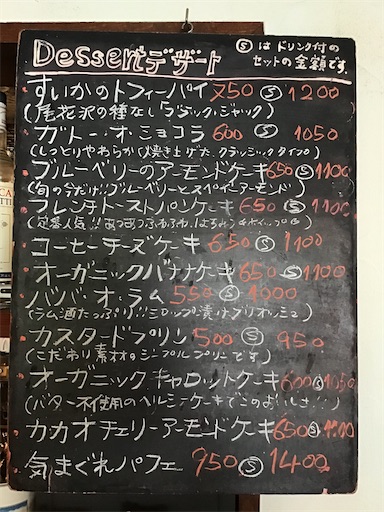 Dessert デザート
Ⓢは ドリンク付の
セットの金額です。
すいかのトフィーパイ 750 Ⓢ 1200
(尾花沢の種なし「ブラック・ジャック」)
ガトー・オ・ショコラ 600 Ⓢ 1050
(しっとりやわらかく焼き上げた クラッシックタイプ)
ブルーベリーのアーモンドケーキ 650 Ⓢ 1100
(旬の今だけ!!ブルーベリーとスペインアーモンド)
フレンチトーストパンケーキ 650 Ⓢ 1100
(定番人気!!あつあつふわふわ、はちみつ
コーヒーチーズケーキ 650 Ⓢ 1100
オーガニックバナナケーキ 650 Ⓢ 1100
ババ・オ・ラム 550 Ⓢ 1000
(ラム酒たっぷり!!シロップ漬けブリオッシュ)
カスタードプリン 500 Ⓢ 950
(こだわり素材のシンプルプリンです)
オーガニックキャロットケーキ 600 Ⓢ 1050
(バター不使用のヘルシーケーキでこのおいしさ!!)
カカオチェリーアーモンドケーキ 650 Ⓢ 1100
気まぐれパフェ 950 Ⓢ 1400